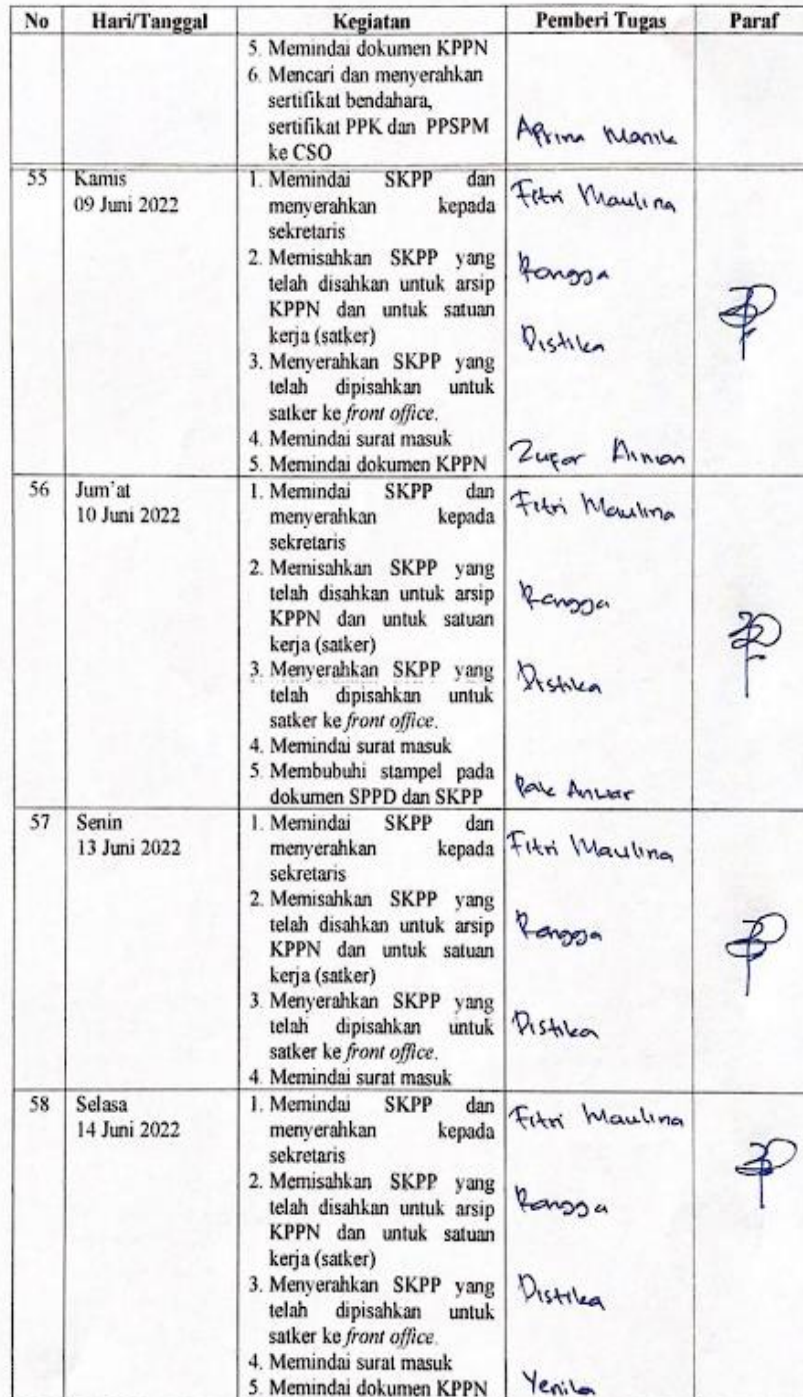 No Hari/Tanggal Kegiatan Pemberi Tugas Paraf
5. Memindai dokumen KPPN
6. Mencari dan menyerahkan
sertifikat bendahara,
sertifikat PPK dan PPSPM
ke CSO
Aprina Manik
55 Kamis
09 Juni 2022
1. Memindai SKPP dan
menyerahkan kepada
sekretaris
Fitri Maulina
2. Memisahkan SKPP yang
telah disahkan untuk arsip
KPPN dan untuk satuan
kerja (satker)
Rangga
3. Menyerahkan SKPP yang
telah dipisahkan untuk
satker ke front office.
Distika
4. Memindai surat masuk
5. Memindai dokumen KPPN
56 Jum'at
10 Juni 2022
1. Memindai SKPP dan
menyerahkan kepada
sekretaris
Fitri Maulina
2. Memisahkan SKPP yang
telah disahkan untuk arsip
KPPN dan untuk satuan
kerja (satker)
Rangga
3. Menyerahkan SKPP yang
telah dipisahkan untuk
satker ke front office.
Distika
4. Memindai surat masuk
5. Membubuhi stampel pada
dokumen SPPD dan SKPP
Pak Anwar
57 Senin
13 Juni 2022
1. Memindai SKPP dan
menyerahkan kepada
sekretaris
Fitri Maulina
2. Memisahkan SKPP yang
telah disahkan untuk arsip
KPPN dan untuk satuan
kerja (satker)
Rangga
3. Menyerahkan SKPP yang
telah dipisahkan untuk
satker ke front office.
Distika
4. Memindai surat masuk
58 Selasa
14 Juni 2022
1. Memindai SKPP dan
menyerahkan kepada
sekretaris
Fitri Maulina
2. Memisahkan SKPP yang
telah disahkan untuk arsip
KPPN dan untuk satuan
kerja (satker)
Rangga
3. Menyerahkan SKPP yang
telah dipisahkan untuk
satker ke front office.
Distika
4. Memindai surat masuk
5. Memindai dokumen KPPN
Yenila